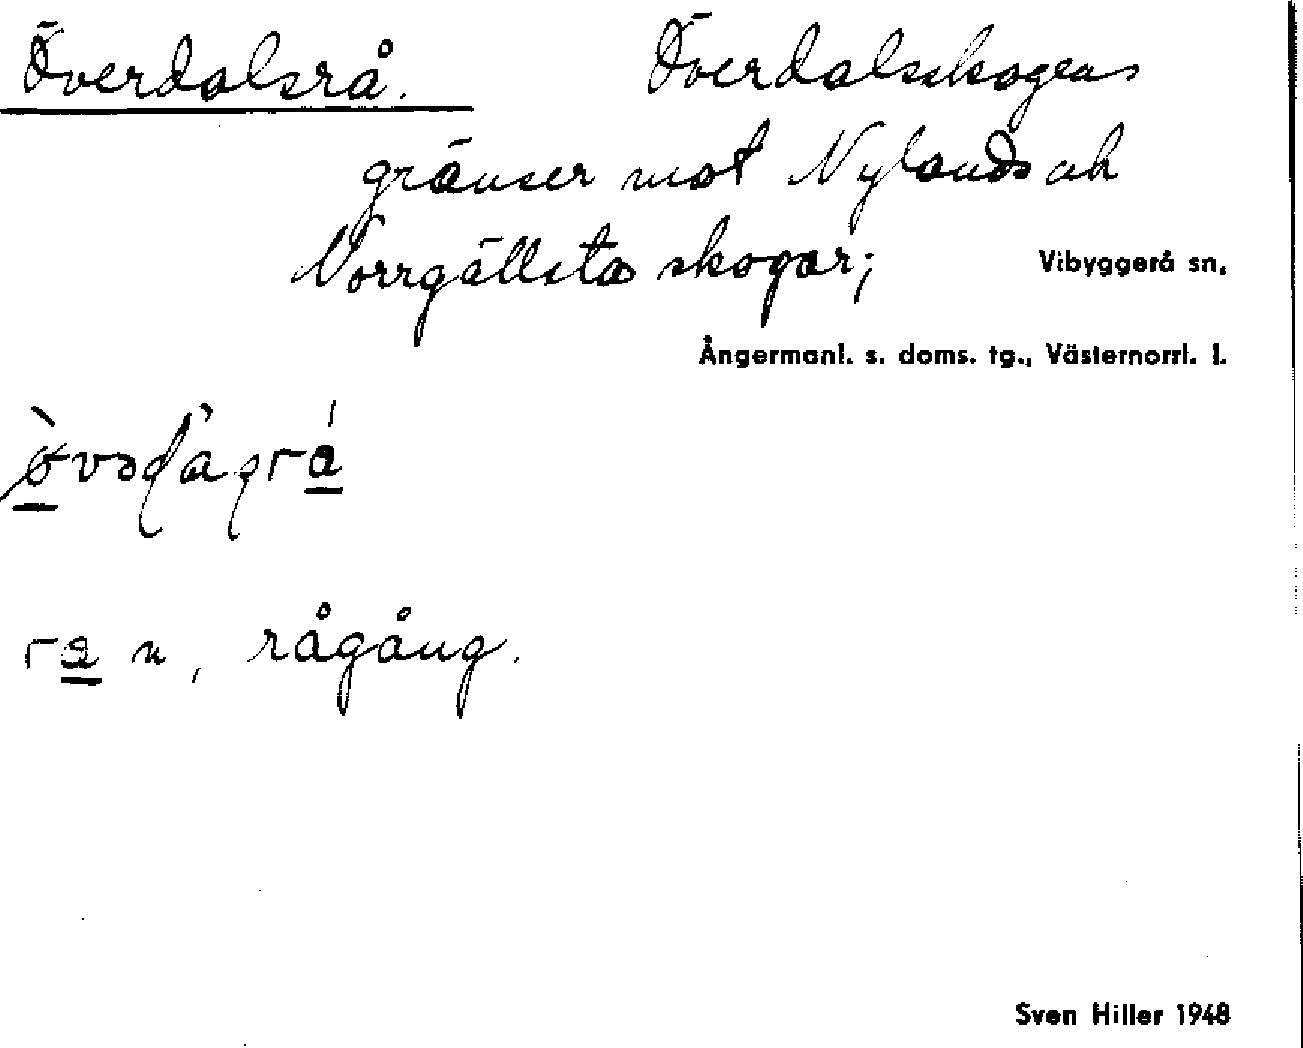 Överdalsrå. Överdalsskogens
gränser mot Nylands och
Norrgällsta skogar; Vibyggerå sn,
Ångermanl. s. doms. tg., Västernorrl. l.
rågång.
Sven Hiller 1948